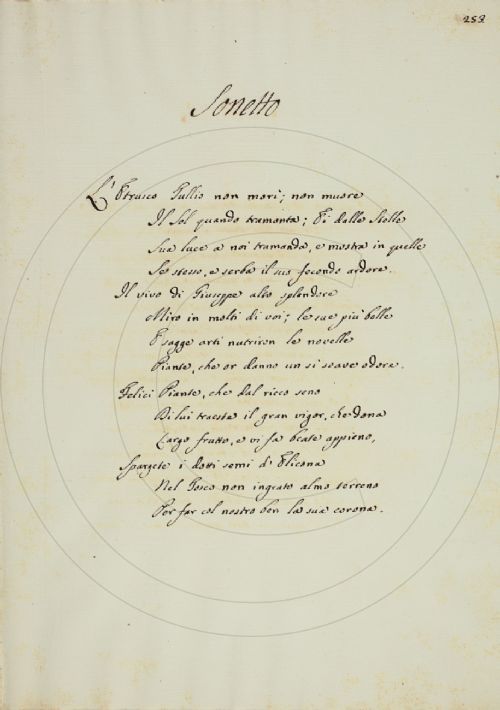 259
Sonetto
L'Etrusco Tullio non morì; non muore
Il Sol quando tramonta; Ei dalle Stelle
Sua luce a noi tramanda, e mostra in quelle
Se stesso, e serba il suo fecondo ardore.
Il vivo di Giuseppe alto splendore
Miro in molti di voi; le sue più belle
E sagge arti nutriron le novelle
Piante, che or danno un sì soave odore.
Felici Piante, che dal ricco seno
Di lui traeste il gran vigor, che dona
Largo frutto, e vi fa beate appieno,
Spargete i dotti semi d'Elicona
Nel Tosco non ingrato almo terreno
Per far col nostro ben la sua corona.